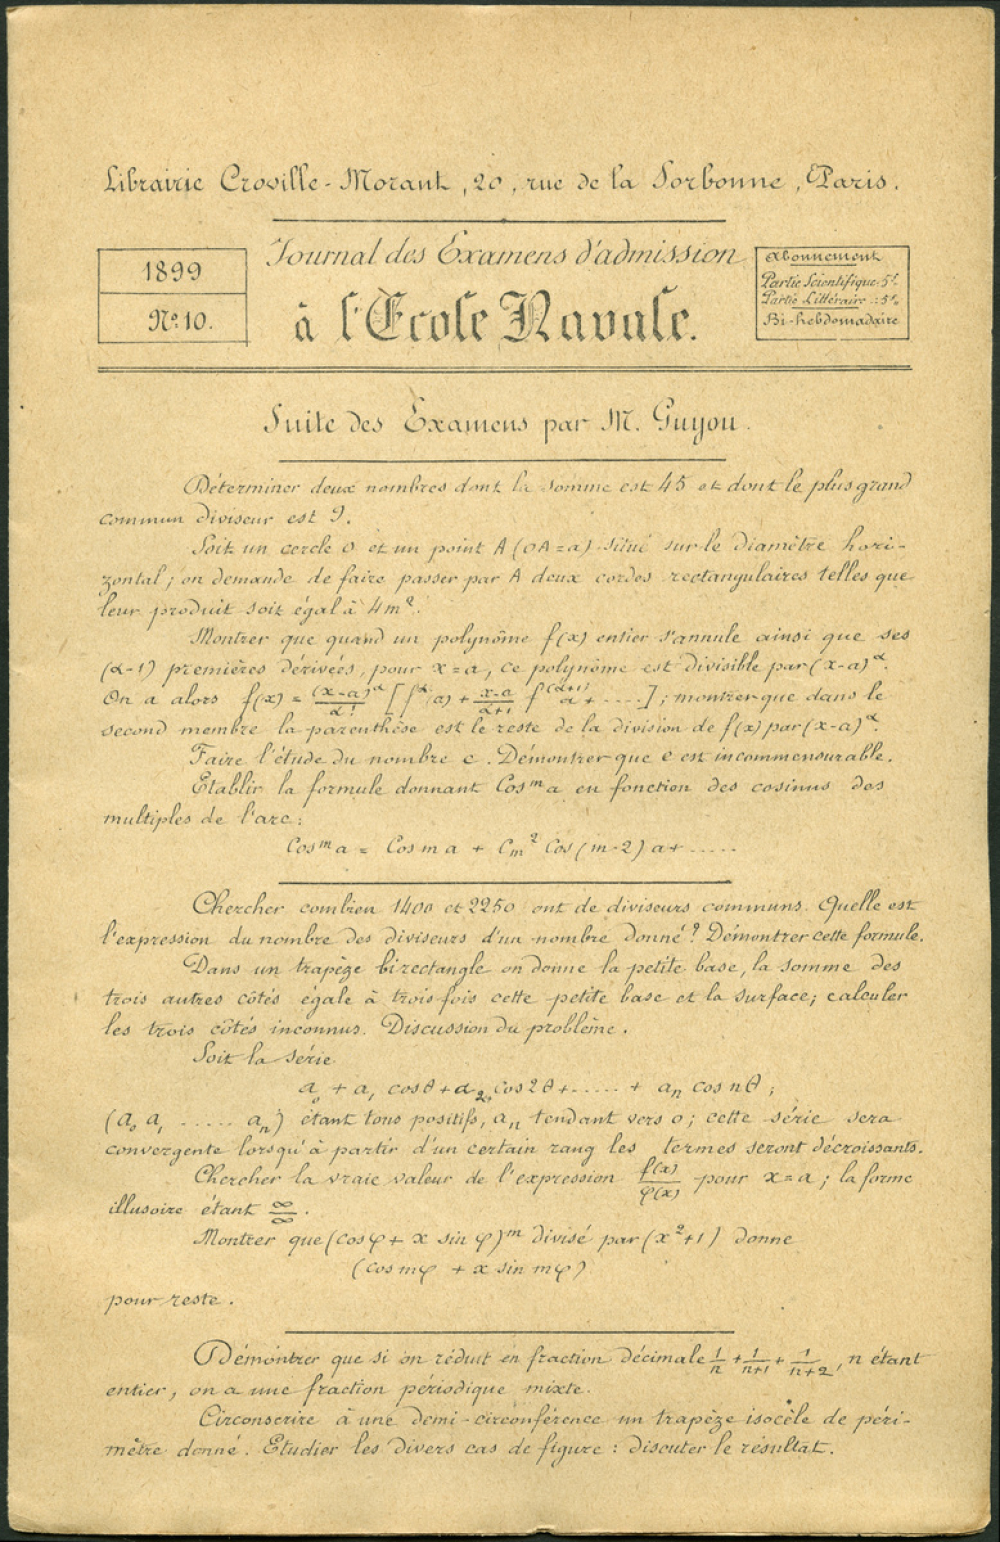 Librairie Croville-Morant, 20, rue de la Sorbonne, Paris.
Journal des Examens d'admission
à l'Ecole Navale.
1899
Nº 10.
Abonnement
Partie Scientifique: 5f.
Partie Littéraire: 5f.
Bi-hebdomadaire
Suite des Examens par M. Guyou.
Déterminer deux nombres dont la somme est 45 et dont le plus grand
commun diviseur est 9.
Soit un cercle O et un point A (OA=a) situé sur le diamètre hori-
zontal; on demande de faire passer par A deux cordes rectangulaires telles que
leur produit soit égal à 4m².
Montrer que quand un polynôme f(x) entier s'annule ainsi que ses
(α-1) premières dérivées, pour x=a, ce polynôme est divisible par (x-a)^α.
On a alors f(x) = (x-a)^α/α! [f^α(a) + (x-a)/(α+1) f^(α+1) a + ....]; montrer que dans le
second membre la parenthèse est le reste de la division de f(x) par (x-a)^α.
Faire l'étude du nombre e. Démontrer que e est incommensurable.
Etablir la formule donnant Cos^m a en fonction des cosinus des
multiples de l'arc:
Cos^m a = Cos m a + C_m^2 Cos (m-2) a + .....
Chercher combien 1400 et 2250 ont de diviseurs communs. Quelle est
l'expression du nombre des diviseurs d'un nombre donné? Démontrer cette formule.
Dans un trapèze birectangle on donne la petite base, la somme des
trois autres côtés égale à trois fois cette petite base et la surface; calculer
les trois côtés inconnus. Discussion du problème.
Soit la série
a₀ + a₁ cosθ + a₂ cos 2θ + ..... + aₙ cos nθ;
(a₀ a₁ ..... aₙ) étant tous positifs, aₙ tendant vers 0; cette série sera
convergente lorsqu'à partir d'un certain rang les termes seront décroissants.
Chercher la vraie valeur de l'expression f(x)/φ(x) pour x=a; la forme
illusoire étant ∞/∞.
Montrer que (cosφ + x sin φ)^m divisé par (x²+1) donne
(cos mφ + x sin mφ)
pour reste.
Démontrer que si on réduit en fraction décimale 1/n + 1/(n+1) + 1/(n+2), n étant
entier, on a une fraction périodique mixte.
Circonscrire à une demi-circonférence un trapèze isocèle de péri-
mètre donné. Etudier les divers cas de figure: discuter le résultat.